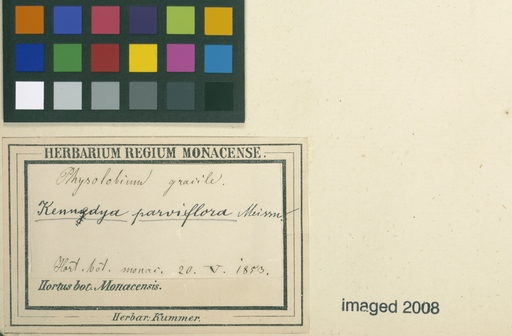 HERBARIUM REGIUM MONACENSE.
Physolobium gracile.
Kennedya parviflora Meissn.
Hort. bot. monac. 20. V. 1853.
Hortus bot. Monacensis.
Herbar. Kummer.
imaged 2008